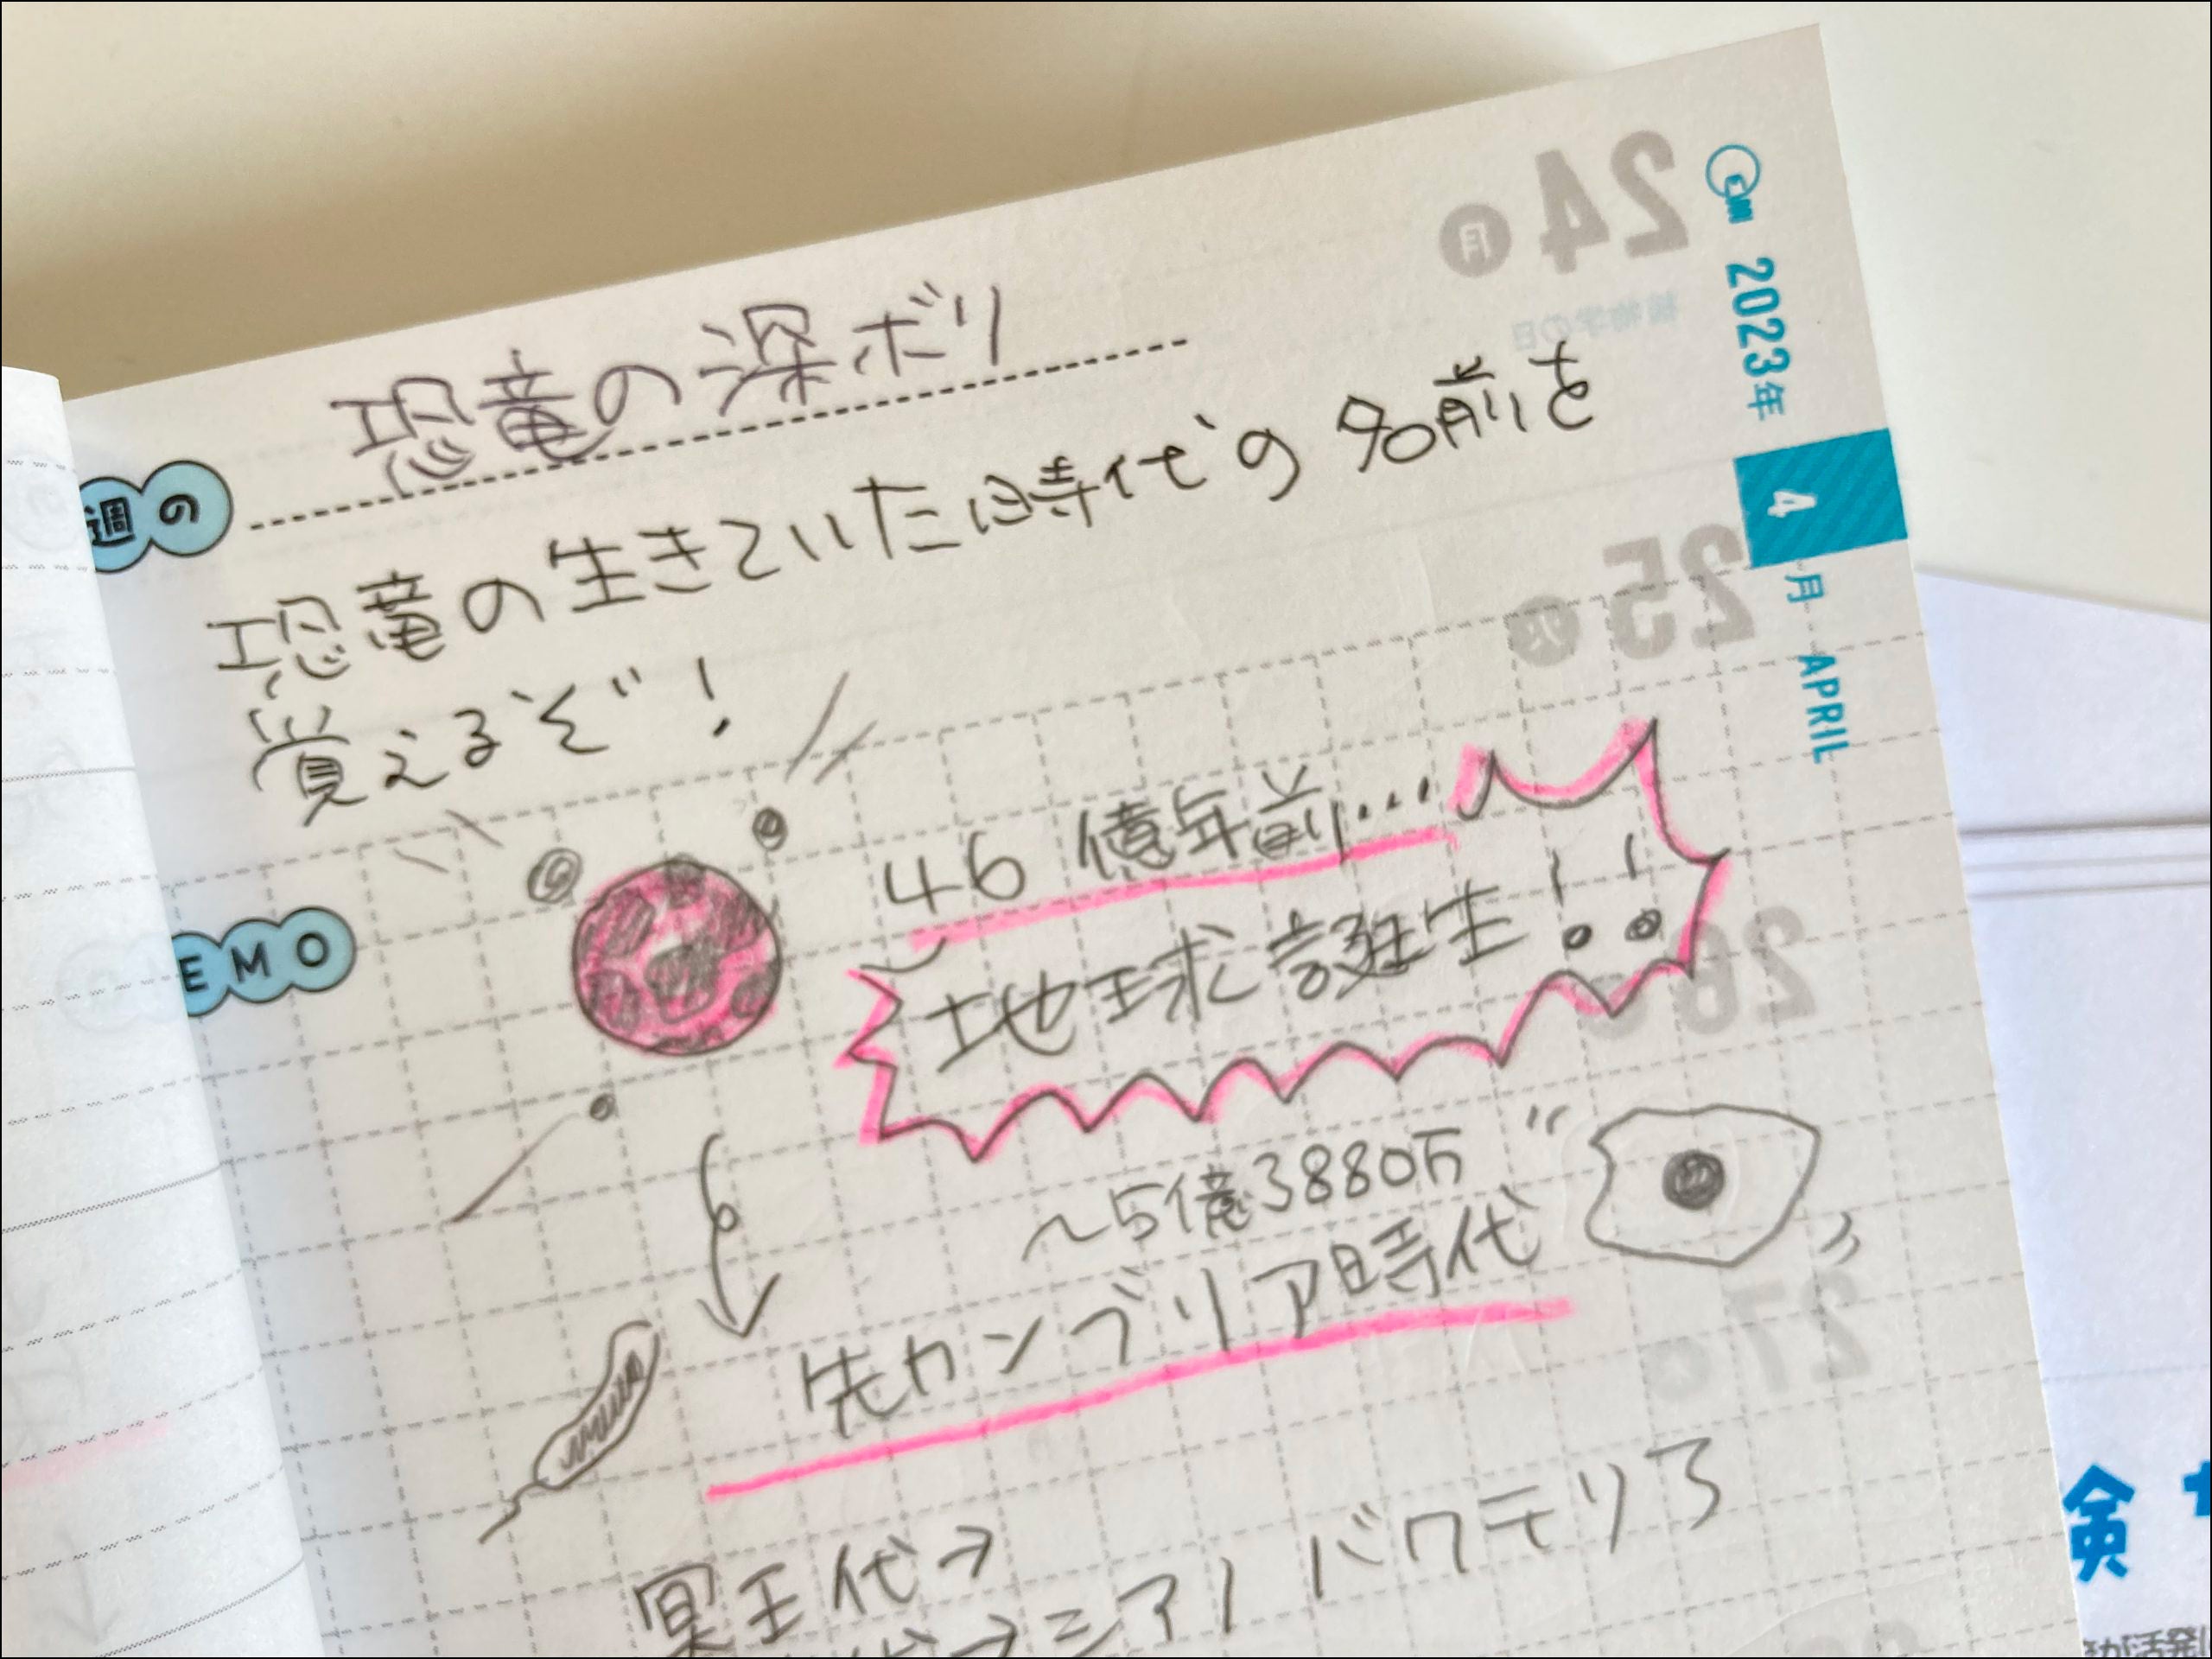 2023年
4
月
APRIL
恐竜の深ボリ
週の
恐竜の生きていた時代の名前を
覚えるぞ!
EMO
46億年前...
地球誕生!!
~5億3880万
先カンブリア時代
冥王代→
代→シアノバクテリア
24
月
25
火
26
27
検
が活発